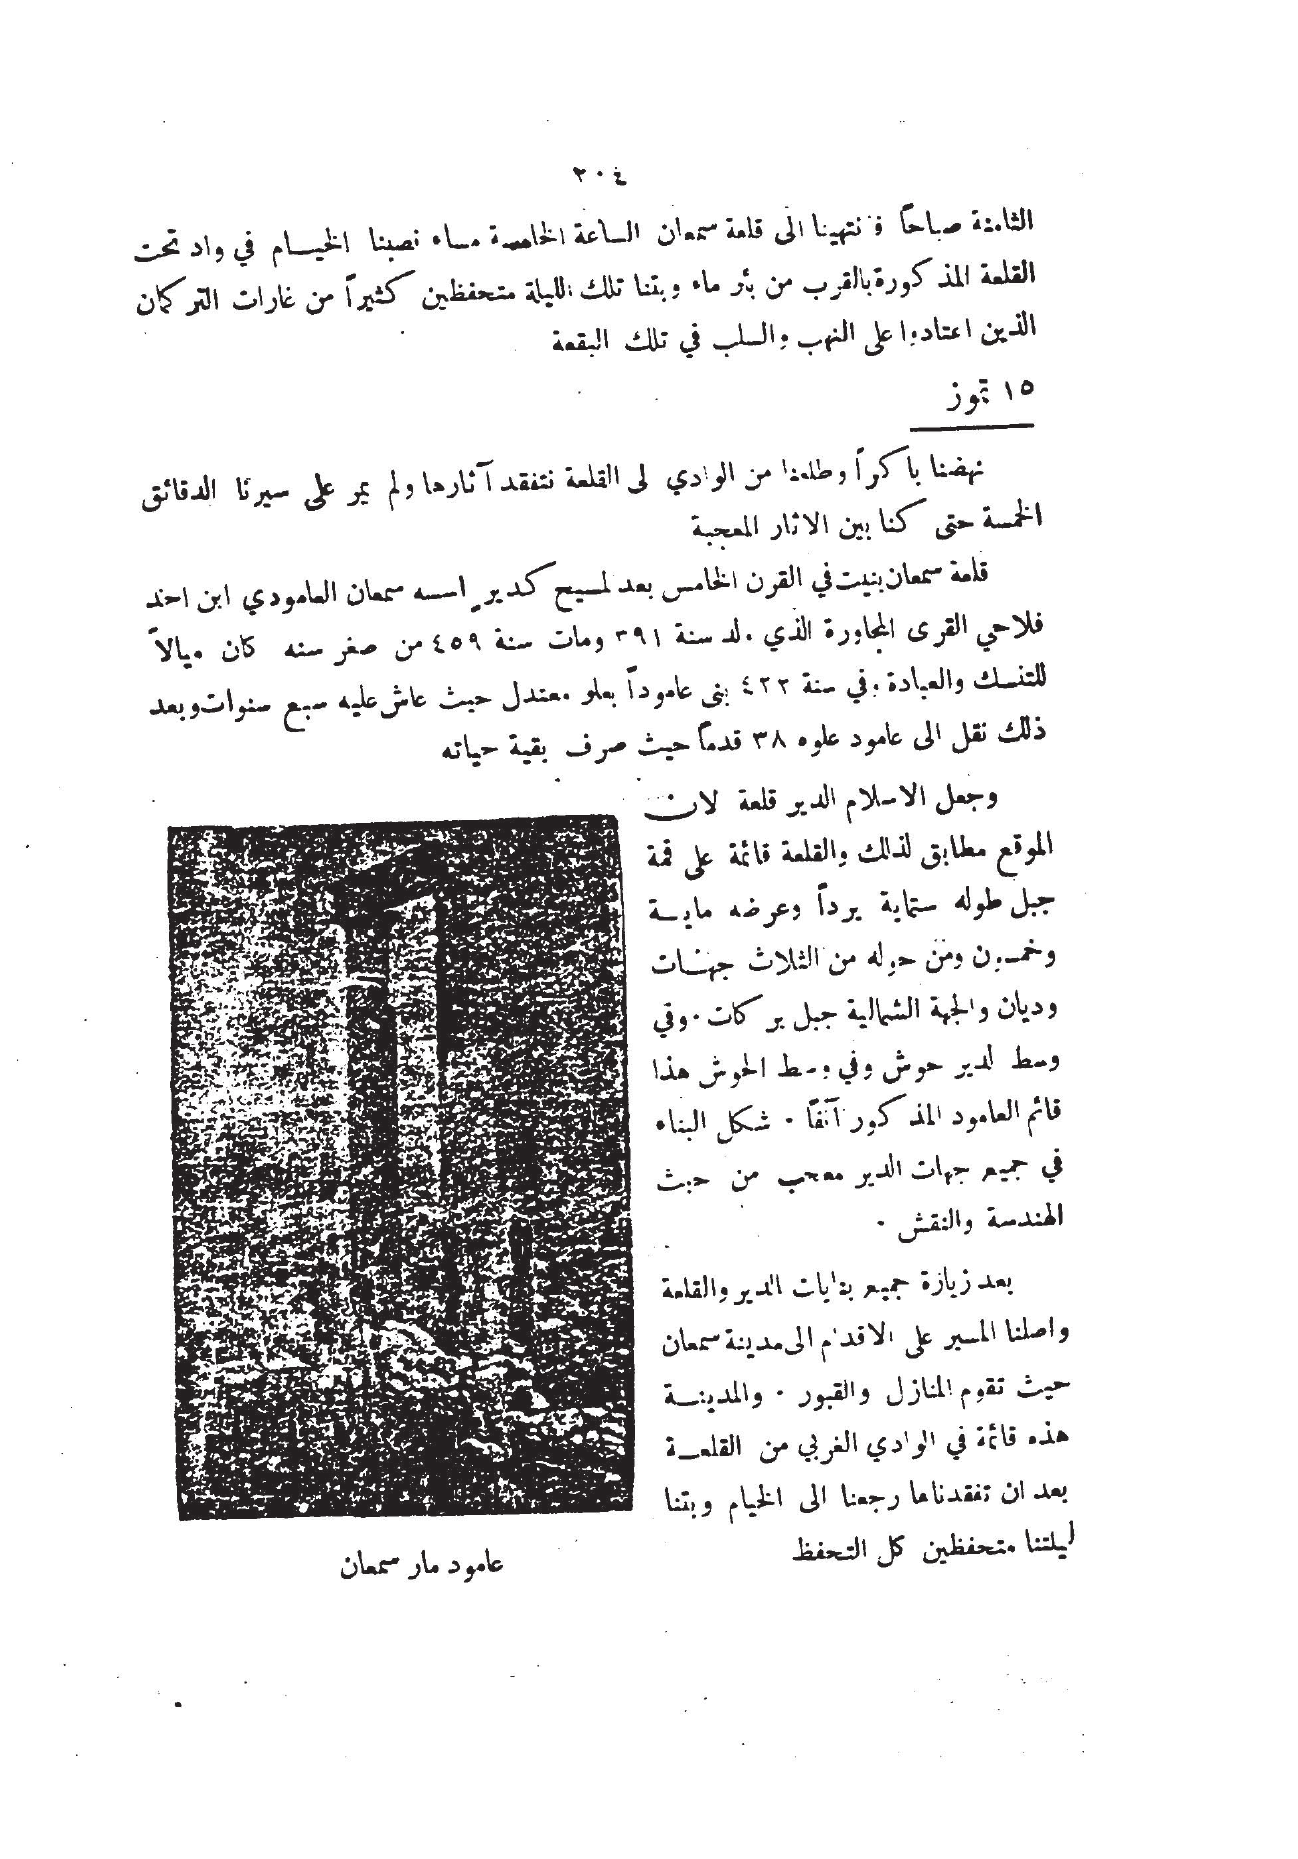 ٢٠٤
الثامنة صباحاً فانتهينا الى قلعة سمعان الساعة الخامسة مساء نصبنا الخيام في واد تحت
القلعة المذكورة بالقرب من بئر ماء وبتنا تلك الليلة متحفظين كثيراً من غارات التركمان
الذين اعتادوا على النهب والسلب في تلك البقعة
١٥ تموز
نهضنا باكراً وطلعنا من الوادي الى القلعة نتفقد آثارها ولم يمر على سيرنا الدقائق
الخمسة حتى كنا بين الاثار المعجبة
قلعة سمعان بنيت في القرن الخامس بعد المسيح كدير اسسه سمعان العامودي ابن احد
فلاحي القرى المجاورة الذي ولد سنة ٣٩١ ومات سنة ٤٥٩ من صغر سنه كان ميالاً
للتنسك والعبادة وفي سنة ٤٢٢ بنى عاموداً بعلو معتدل حيث عاش عليه سبع سنوات وبعد
ذلك نقل الى عامود علوه ٣٨ قدماً حيث صرف بقية حياته
وجعل الاسلام الدير قلعة لان
الموقع مطابق لذلك والقلعة قائمة على قمة
جبل طوله ستماية يرداً وعرضه ماية
وخمسون ومن حوله من الثلاث جهات
وديان والجهة الشمالية جبل بركات ٠ وفي
وسط الدير حوش وفي وسط الحوش هذا
قائم العامود المذكور آنفاً ٠ شكل البناء
في جميع جهات الدير معجب من حيث
الهندسة والنقش ٠
بعد زيارة جميع بقايات الدير والقلعة
واصلنا المسير على الاقدام الى مدينة سمعان
حيث تقوم المنازل والقبور ٠ والمدينة
هذه قائمة في الوادي الغربي من القلعة
بعد ان تفقدناها رجعنا الى الخيام وبتنا
ليلتنا متحفظين كل التحفظ
عامود مار سمعان